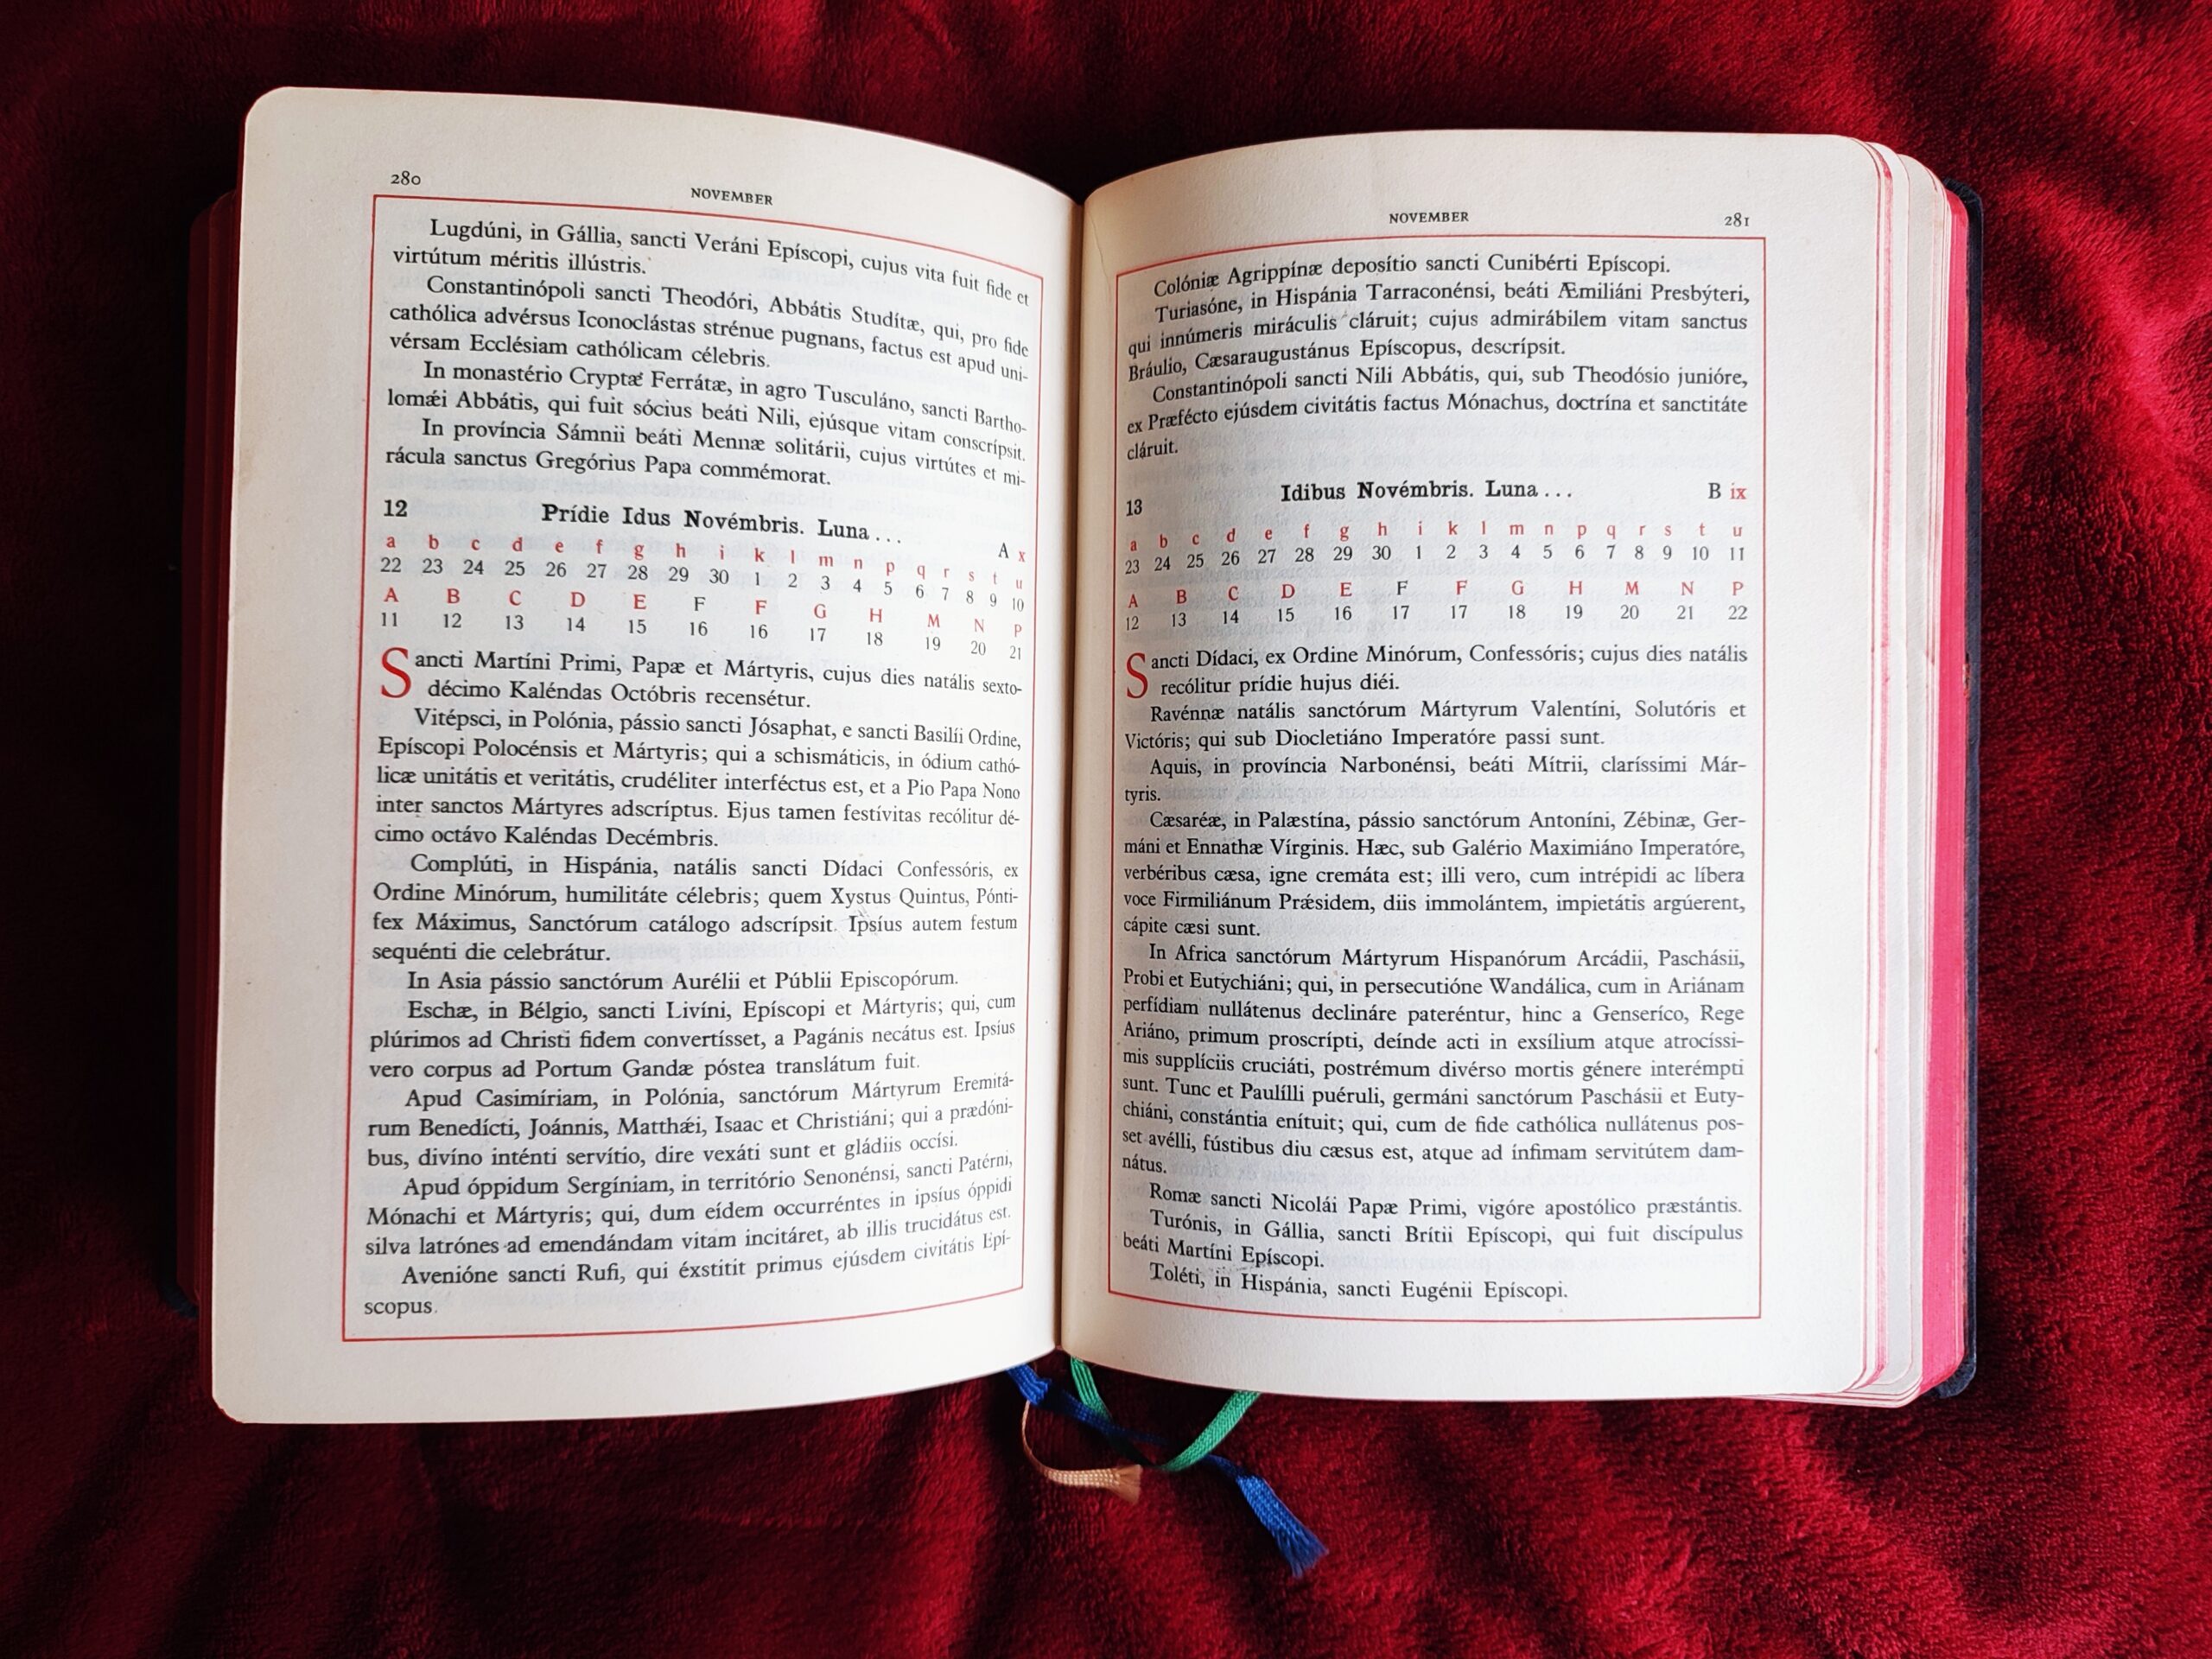 280
NOVEMBER
Lugdúni, in Gállia, sancti Veráni Epíscopi, cujus vita fuit fide et
virtútum méritis illústris.
Constantinópoli sancti Theodóri, Abbátis Studítæ, qui, pro fide
cathólica advérsus Iconoclástas strénue pugnans, factus est apud uni-
vérsam Ecclésiam cathólicam célebris.
In monastério Cryptæ Ferrátæ, in agro Tusculáno, sancti Bartho-
lomǽi Abbátis, qui fuit sócius beáti Nili, ejúsque vitam conscrípsit.
In província Sámnii beáti Mennæ solitárii, cujus virtútes et mi-
rácula sanctus Gregórius Papa commémorat.
12 Prídie Idus Novémbris. Luna ... A x
a b c d e f g h i k l m n p q r s t u
22 23 24 25 26 27 28 29 30 1 2 3 4 5 6 7 8 9 10
A B C D E F F G H M N P
11 12 13 14 15 16 16 17 18 19 20 21
Sancti Martíni Primi, Papæ et Mártyris, cujus dies natális sexto-
décimo Kaléndas Octóbris recensétur.
Vitépsci, in Polónia, pássio sancti Jósaphat, e sancti Basilíi Ordine,
Epíscopi Polocénsis et Mártyris; qui a schismáticis, in ódium cathó-
licæ unitátis et veritátis, crudéliter interféctus est, et a Pio Papa Nono
inter sanctos Mártyres adscríptus. Ejus tamen festívitas recólitur dé-
cimo octávo Kaléndas Decémbris.
Complúti, in Hispánia, natális sancti Dídaci Confessóris, ex
Ordine Minórum, humilitáte célebris; quem Xystus Quintus, Pónti-
fex Máximus, Sanctórum catálogo adscrípsit. Ipsíus autem festum
sequénti die celebrátur.
In Asia pássio sanctórum Aurélii et Públii Episcopórum.
Eschæ, in Bélgio, sancti Livíni, Epíscopi et Mártyris; qui, cum
plúrimos ad Christi fidem convertísset, a Pagánis necátus est. Ipsíus
vero corpus ad Portum Gandæ póstea translátum fuit.
Apud Casimíriam, in Polónia, sanctórum Mártyrum Eremitá-
rum Benedícti, Joánnis, Matthǽi, Isaac et Christiáni; qui a prædóni-
bus, divíno inténti servítio, dire vexáti sunt et gládiis occísi.
Apud óppidum Sergíniam, in território Senonénsi, sancti Patérni,
Mónachi et Mártyris; qui, dum eídem occurréntes in ipsíus óppidi
silva latrónes ad emendándam vitam incitáret, ab illis trucidátus est.
Avenióne sancti Rufi, qui éxstitit primus ejúsdem civitátis Epí-
scopus.
NOVEMBER
281
Colóniæ Agrippínæ deposítio sancti Cunibérti Epíscopi.
Turiasóne, in Hispánia Tarraconénsi, beáti Æmiliáni Presbýteri,
qui innúmeris miráculis cláruit; cujus admirábilem vitam sanctus
Bráulio, Cæsaraugustánus Epíscopus, descrípsit.
Constantinópoli sancti Nili Abbátis, qui, sub Theodósio junióre,
ex Præfécto ejúsdem civitátis factus Mónachus, doctrína et sanctitáte
cláruit.
13 Idibus Novémbris. Luna ... B ix
a b c d e f g h i k l m n p q r s t u
23 24 25 26 27 28 29 30 1 2 3 4 5 6 7 8 9 10 11
A B C D E F F G H M N P
12 13 14 15 16 17 17 18 19 20 21 22
Sancti Dídaci, ex Ordine Minórum, Confessóris; cujus dies natális
recólitur prídie hujus diéi.
Ravénnæ natális sanctórum Mártyrum Valentíni, Solutóris et
Victóris; qui sub Diocletiáno Imperatóre passi sunt.
Aquis, in província Narbonénsi, beáti Mítrii, claríssimi Már-
tyris.
Cæsaréæ, in Palæstína, pássio sanctórum Antoníni, Zébinæ, Ger-
máni et Ennathæ Vírginis. Hæc, sub Galério Maximiáno Imperatóre,
verbéribus cæsa, igne cremáta est; illi vero, cum intrépidi ac líbera
voce Firmiliánum Prǽsidem, diis immolántem, impietátis argúerent,
cápite cæsi sunt.
In Africa sanctórum Mártyrum Hispanórum Arcádii, Paschásii,
Probi et Eutychiáni; qui, in persecutióne Wandálica, cum in Ariánam
perfídiam nullátenus declináre pateréntur, hinc a Genseríco, Rege
Ariáno, primum proscrípti, deínde acti in exsílium atque atrocíssi-
mis supplíciis cruciáti, postrémum divérso mortis génere interémpti
sunt. Tunc et Paulílli puéruli, germáni sanctórum Paschásii et Euty-
chiáni, constántia enítuit; qui, cum de fide cathólica nullátenus pos-
set avélli, fústibus diu cæsus est, atque ad ínfimam servitútem dam-
nátus.
Romæ sancti Nicolái Papæ Primi, vigóre apostólico præstántis.
Turónis, in Gállia, sancti Brítii Epíscopi, qui fuit discípulus
beáti Martíni Epíscopi.
Toléti, in Hispánia, sancti Eugénii Epíscopi.